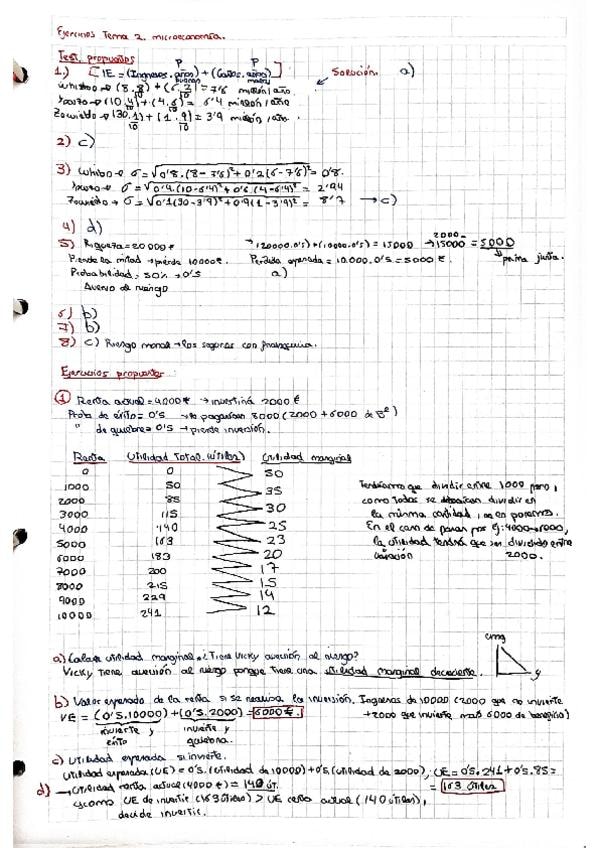 Ejercicios Tema 2. microeconomía.
Test propuestos
P P
1.) [IE = (Ingresos. años) + (Gaños. años)] Solución. a)
buenos malos
Whisboo → (8.8) + (6.2) = 7'6 millón/año
10 10
(10.4) + (4.6) = 6'4 millón/año
10 10
Zowiedo → (30.1) + (1.9) = 3'9 millón/año.
10 10
2) c)
3) Whisbo → σ = √0'8.(8-7'6)²+0'2(6-7'6)² = 0'8.
σ = √0'4.(10-6'4)²+0'6(4-6'4)² = 2'94
Zowiedo → σ = √0'1(30-3'9)²+0'9(1-3'9)² = 8'7 → c)
4) d)
5) Riqueza = 20000 € → (20000.0'5)+(10000.0'5) = 15000 → 15000 = 5000
Pierde la mitad → pierde 10000 €. Pérdida esperada = 10.000.0'5 = 5000 €. prima justa.
Probabilidad: 50% → 0'5 a)
Averso de riesgo
6) b)
7) b)
8) c) Riesgo moral → los seguros con franquicia.
Ejercicios propuestos:
1 Renta actual = 4000 € → invertirá 2000 €
Prob de éxito = 0'5 → le pagarían 8000 (2000 + 6000 de Bº)
" de quiebra = 0'5 → pierde inversión.
Renta Utilidad Total (útiles) Utilidad marginal
0 0
50
1000 50
35
2000 85
30
3000 115
25
4000 140
23
5000 163
20
6000 183
17
7000 200
15
8000 215
14
9000 229
12
10000 241
Tendríamos que dividir entre 1000 pero,
como todas se dividir en
la misma cantidad, no lo ponemos.
En el caso de pasar por ej: 4000→6000,
la utilidad tendrá que ser dividida entre
variación 2000.
Umg
y
a) Calcule utilidad marginal. ¿Tiene Vicky aversión al riesgo?
Vicky tiene aversión al riesgo porque tiene una utilidad marginal decreciente.
b) Valor esperado de la renta si se realiza la inversión. Ingresos de 10000 (2000 que no invierte
VE = (0'5.10000) + (0'5.2000) = 6000 €. +2000 que invierte más 6000 de beneficio)
invierte y invierte y
éxito quiebra.
c) Utilidad esperada si invierte.
Utilidad esperada (UE) = 0'5.(Utilidad de 10000) + 0'5(Utilidad de 2000); UE = 0'5.241+0'5.85 =
= 163 útiles
d) → Utilidad renta actual (4000 €) = 140 út.
como UE de invertir (163 útiles) > UE renta actual (140 útiles),
decide invertir.